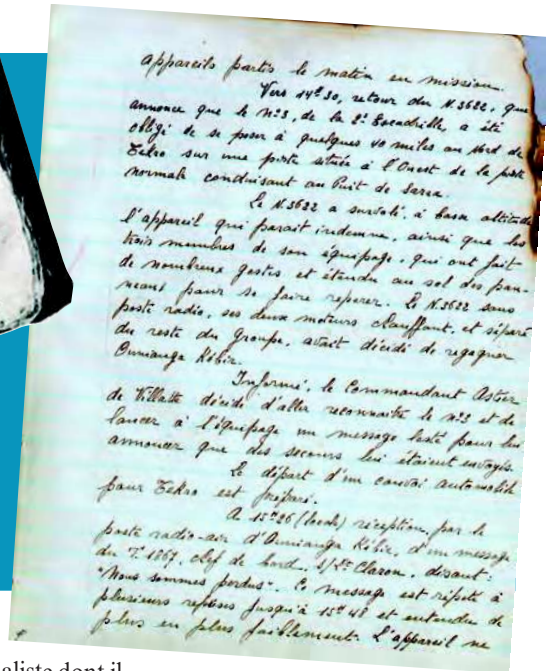 appareils partis le matin en mission.
Vers 14h30, retour du N.3622, que
annonce que le n°3, de la 2e Escadrille, a été
obligé de se poser à quelques 40 miles au Nord de
Tekro sur une piste située à l'Ouest de la piste
normale conduisant au Puit de Sarra.
Le N.3622 a survolé, à basse altitude
l'appareil qui parait indemne, ainsi que les
trois membres de son équipage, qui ont fait
de nombreux gestes et étendu au sol des pan-
neaux pour se faire repérer. Le N.3622 sans
poste radio, ses deux moteurs chauffant, et séparé
du reste du Groupe, avait décidé de regagner
Ounianga Kébir.
Informé, le Commandant Astier
de Villatte décide d'aller reconnaitre le n°3 et de
lancer à l'équipage un message lesté pour lui
annoncer que des secours lui étaient envoyés.
Le départ d'un convoi automobile
pour Tekro est préparé.
A 15h26 (local) réception, par le
poste radio-air d'Ounianga Kébir, d'un message
du T.1867, chef de bord, S/Lt Claron, disant:
"Nous sommes perdus". Ce message est répété à
plusieurs reprises jusqu'à 15h48 et entendu de
plus en plus faiblement. L'appareil ne
aliste dont il